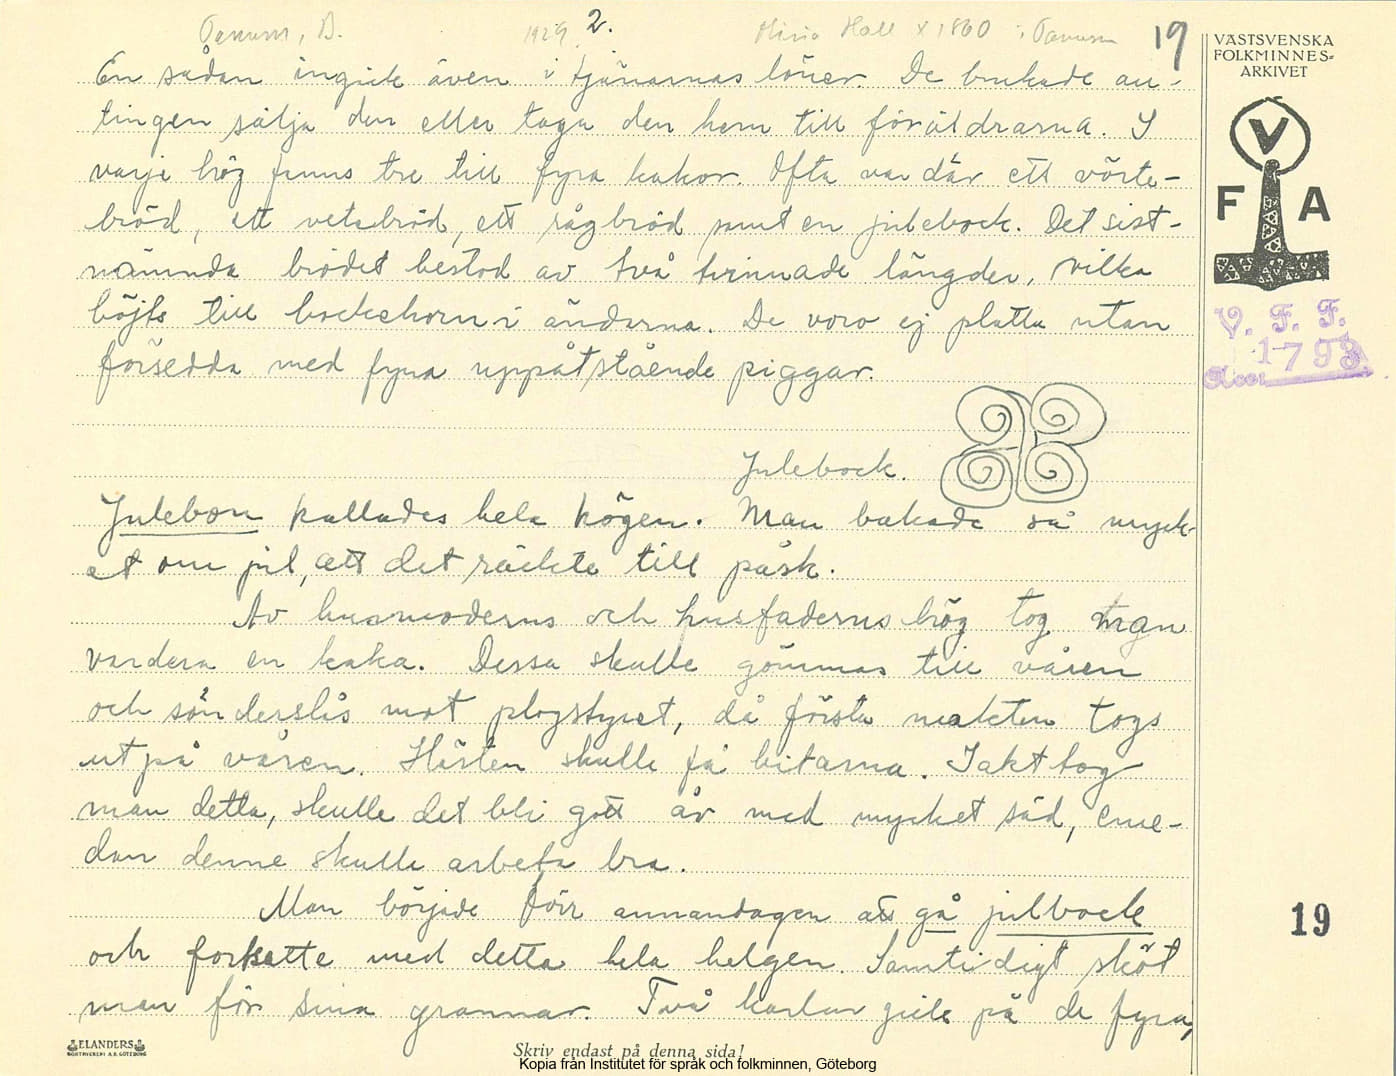 Tanum, B. 1929. 2. Maria Hall x 1860 i Tanum 19
VÄSTSVENSKA
FOLKMINNES-
ARKIVET
V
F A
V. F. F.
1793
Acc:
En sådan ingick även i tjänarnas löner. De brukade an-
tingen sälja den eller taga den hem till föräldrarna. I
varje hög funns tre till fyra kakor. Ofta var där ett vörte-
bröd, ett vetebröd, ett rågbröd samt en julebock. Det sist-
nämnda brödet bestod av två tvinnade längder, vilka
böjts till bockehorn i ändarna. De voro ej platta utan
försedda med fyra uppåtstående piggar.
Julebock.
Julebon kallades hela högen. Man bakade så myck-
et om jul, att det räckte till påsk.
Av husmoderns och husfaderns hög tog man
vardera en kaka. Dessa skulle gömmas till våren
och sönderslås mot plogstyret, då första makten togs
ut på våren. Hästen skulle få bitarna. Iakttog
man detta, skulle det bli gott år med mycket säd, eme-
dan denne skulle arbeta bra.
Man började förr annandagen att gå julbock
och fortsatte med detta hela helgen. Samtidigt sköt
man för sina grannar. Två karlar gick på de fyra,
19
ELANDERS
BOKTRYCKERI A.B. GÖTEBORG
Skriv endast på denna sida!
Kopia från Institutet för språk och folkminnen, Göteborg